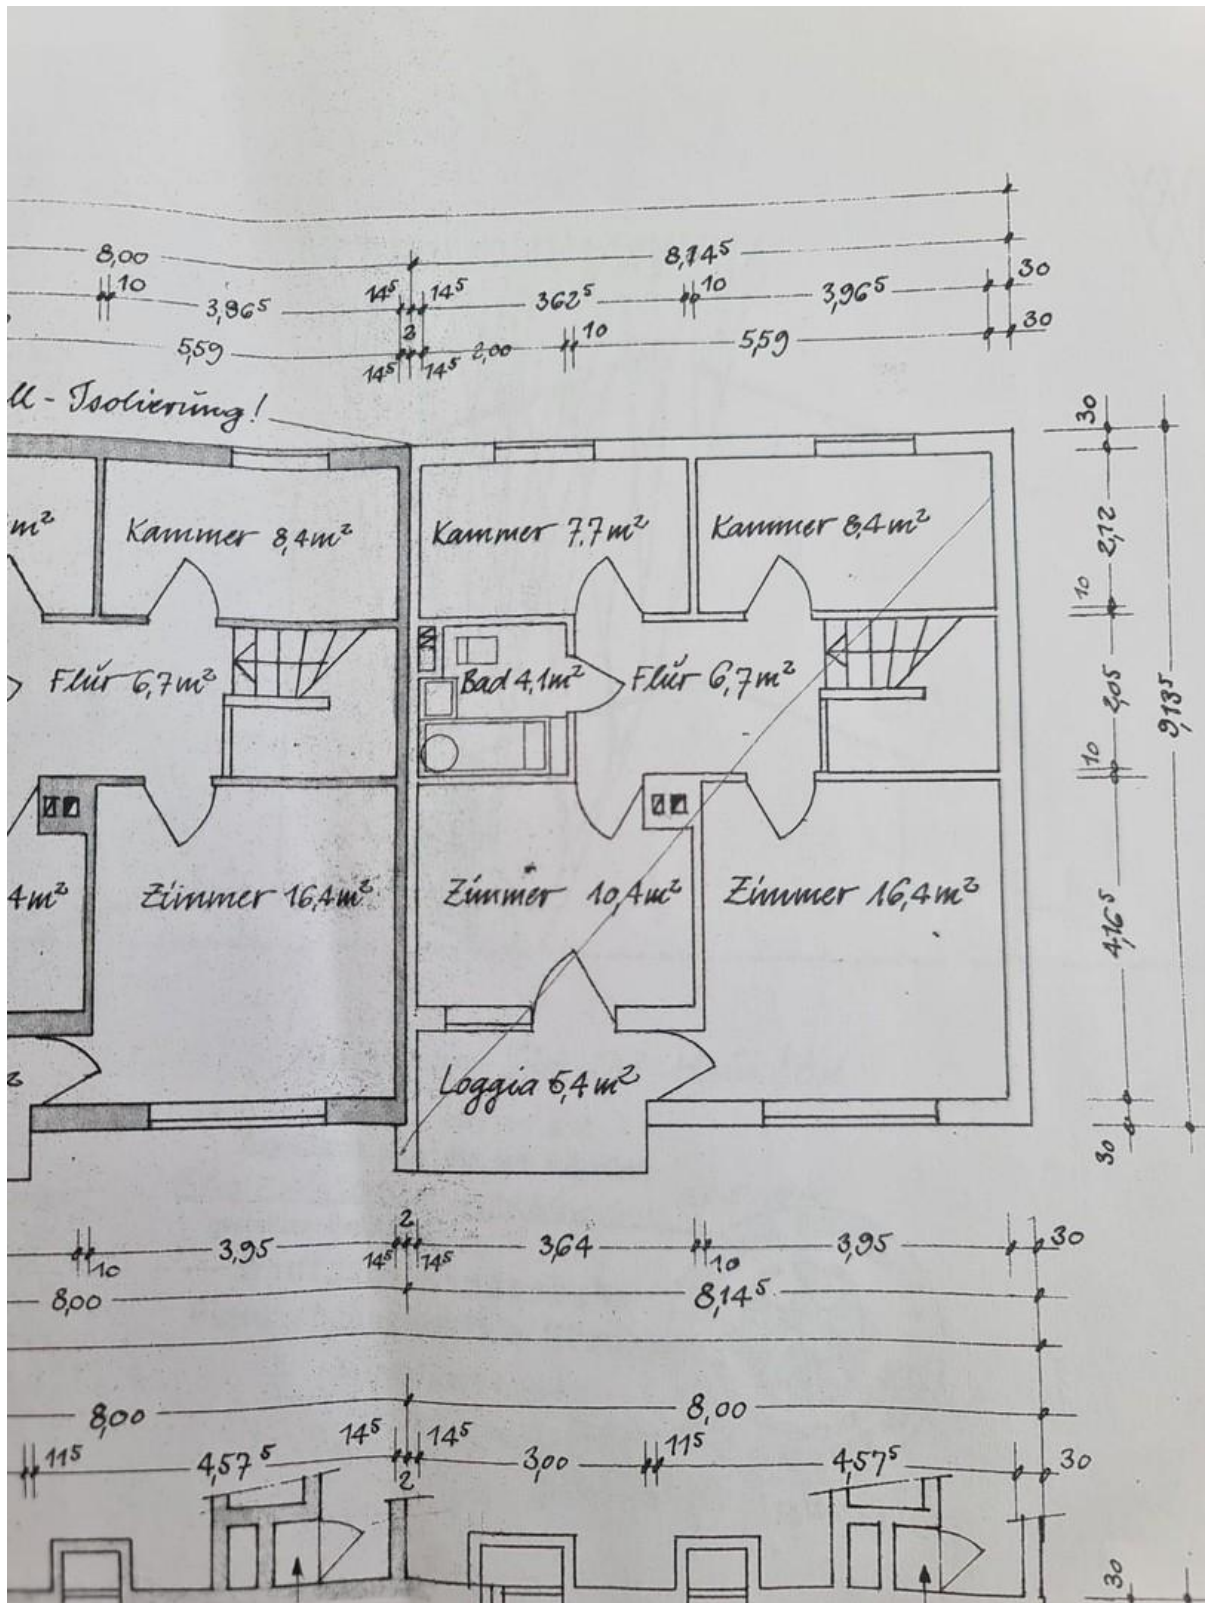 8,00 8,14⁵
10 3,96⁵ 14⁵ 14⁵ 362⁵ 10 3,96⁵ 30
5,59 14⁵ 2 14⁵ 2,00 10 5,59 30
ll - Isolierung!
m² Kammer 8,4m² Kammer 7.7m² Kammer 8,4m²
Flur 6,7m² Bad 4,1m² Flur 6,7m²
4m² Zimmer 16,4m² Zimmer 10,4m² Zimmer 16,4m²
Loggia 5,4m²
30
2,12
10
2,05
10
4,16⁵
30
9,13⁵
10 3,95 14⁵ 2 14⁵ 3,64 10 3,95 30
8,00 8,14⁵
8,00 8,00
11⁵ 4,57⁵ 14⁵ 2 14⁵ 3,00 11⁵ 4,57⁵ 30
30